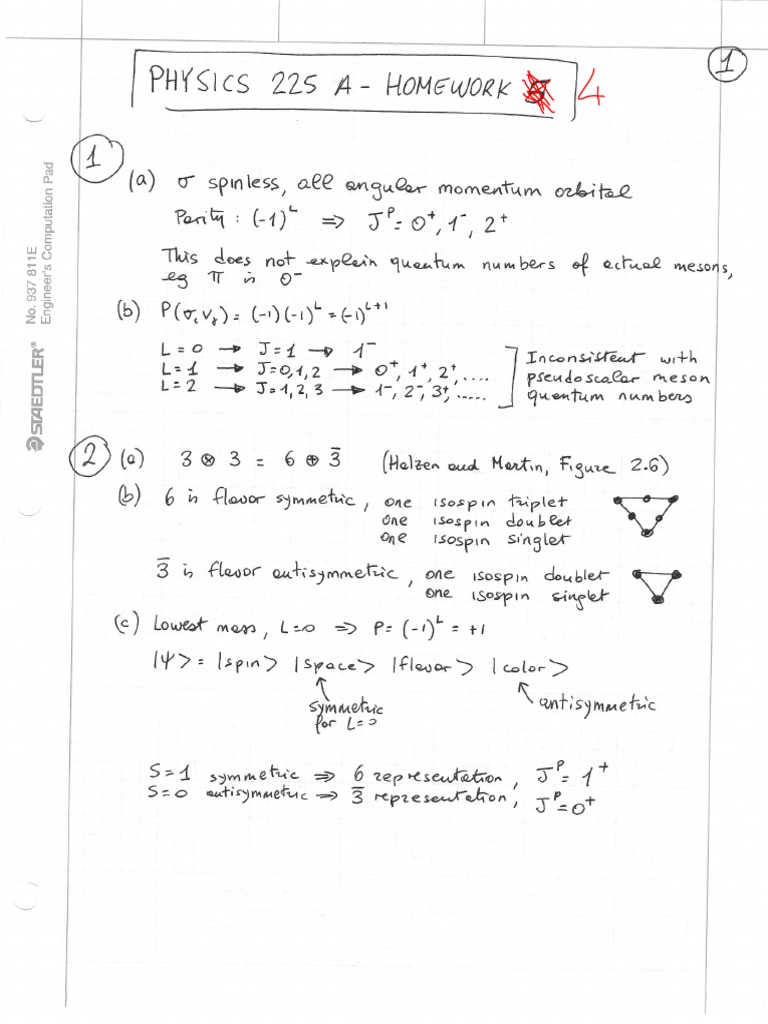 1
PHYSICS 225 A - HOMEWORK 4
No. 937 811E
Engineer's Computation Pad
STAEDTLER®
1
(a) σ spinless, all angular momentum orbital
Parity : (-1)^L ⇒ J^P = 0⁺, 1⁻, 2⁺
This does not explain quantum numbers of actual mesons,
eg π is 0⁻
(b) P(σ, V₈) = (-1)(-1)^L = (-1)^{L+1}
L = 0 → J = 1 → 1⁻
L = 1 → J = 0, 1, 2 → 0⁺, 1⁺, 2⁺, ....
L = 2 → J = 1, 2, 3 → 1⁻, 2⁻, 3⁺, .....
Inconsistent with
pseudoscalar meson
quantum numbers
2 (a) 3 ⊗ 3 = 6 ⊕ 3̄ (Halzen and Martin, Figure 2.6)
(b) 6 is flavor symmetric, one isospin triplet
one isospin doublet
one isospin singlet
3̄ is flavor antisymmetric, one isospin doublet
one isospin singlet
(c) Lowest mass, L=0 ⇒ P = (-1)^L = +1
|Ψ> = |spin> |space> |flavor> |color>
symmetric
for L=0
antisymmetric
S = 1 symmetric ⇒ 6 representation, J^P = 1⁺
S = 0 antisymmetric ⇒ 3̄ representation, J^P = 0⁺